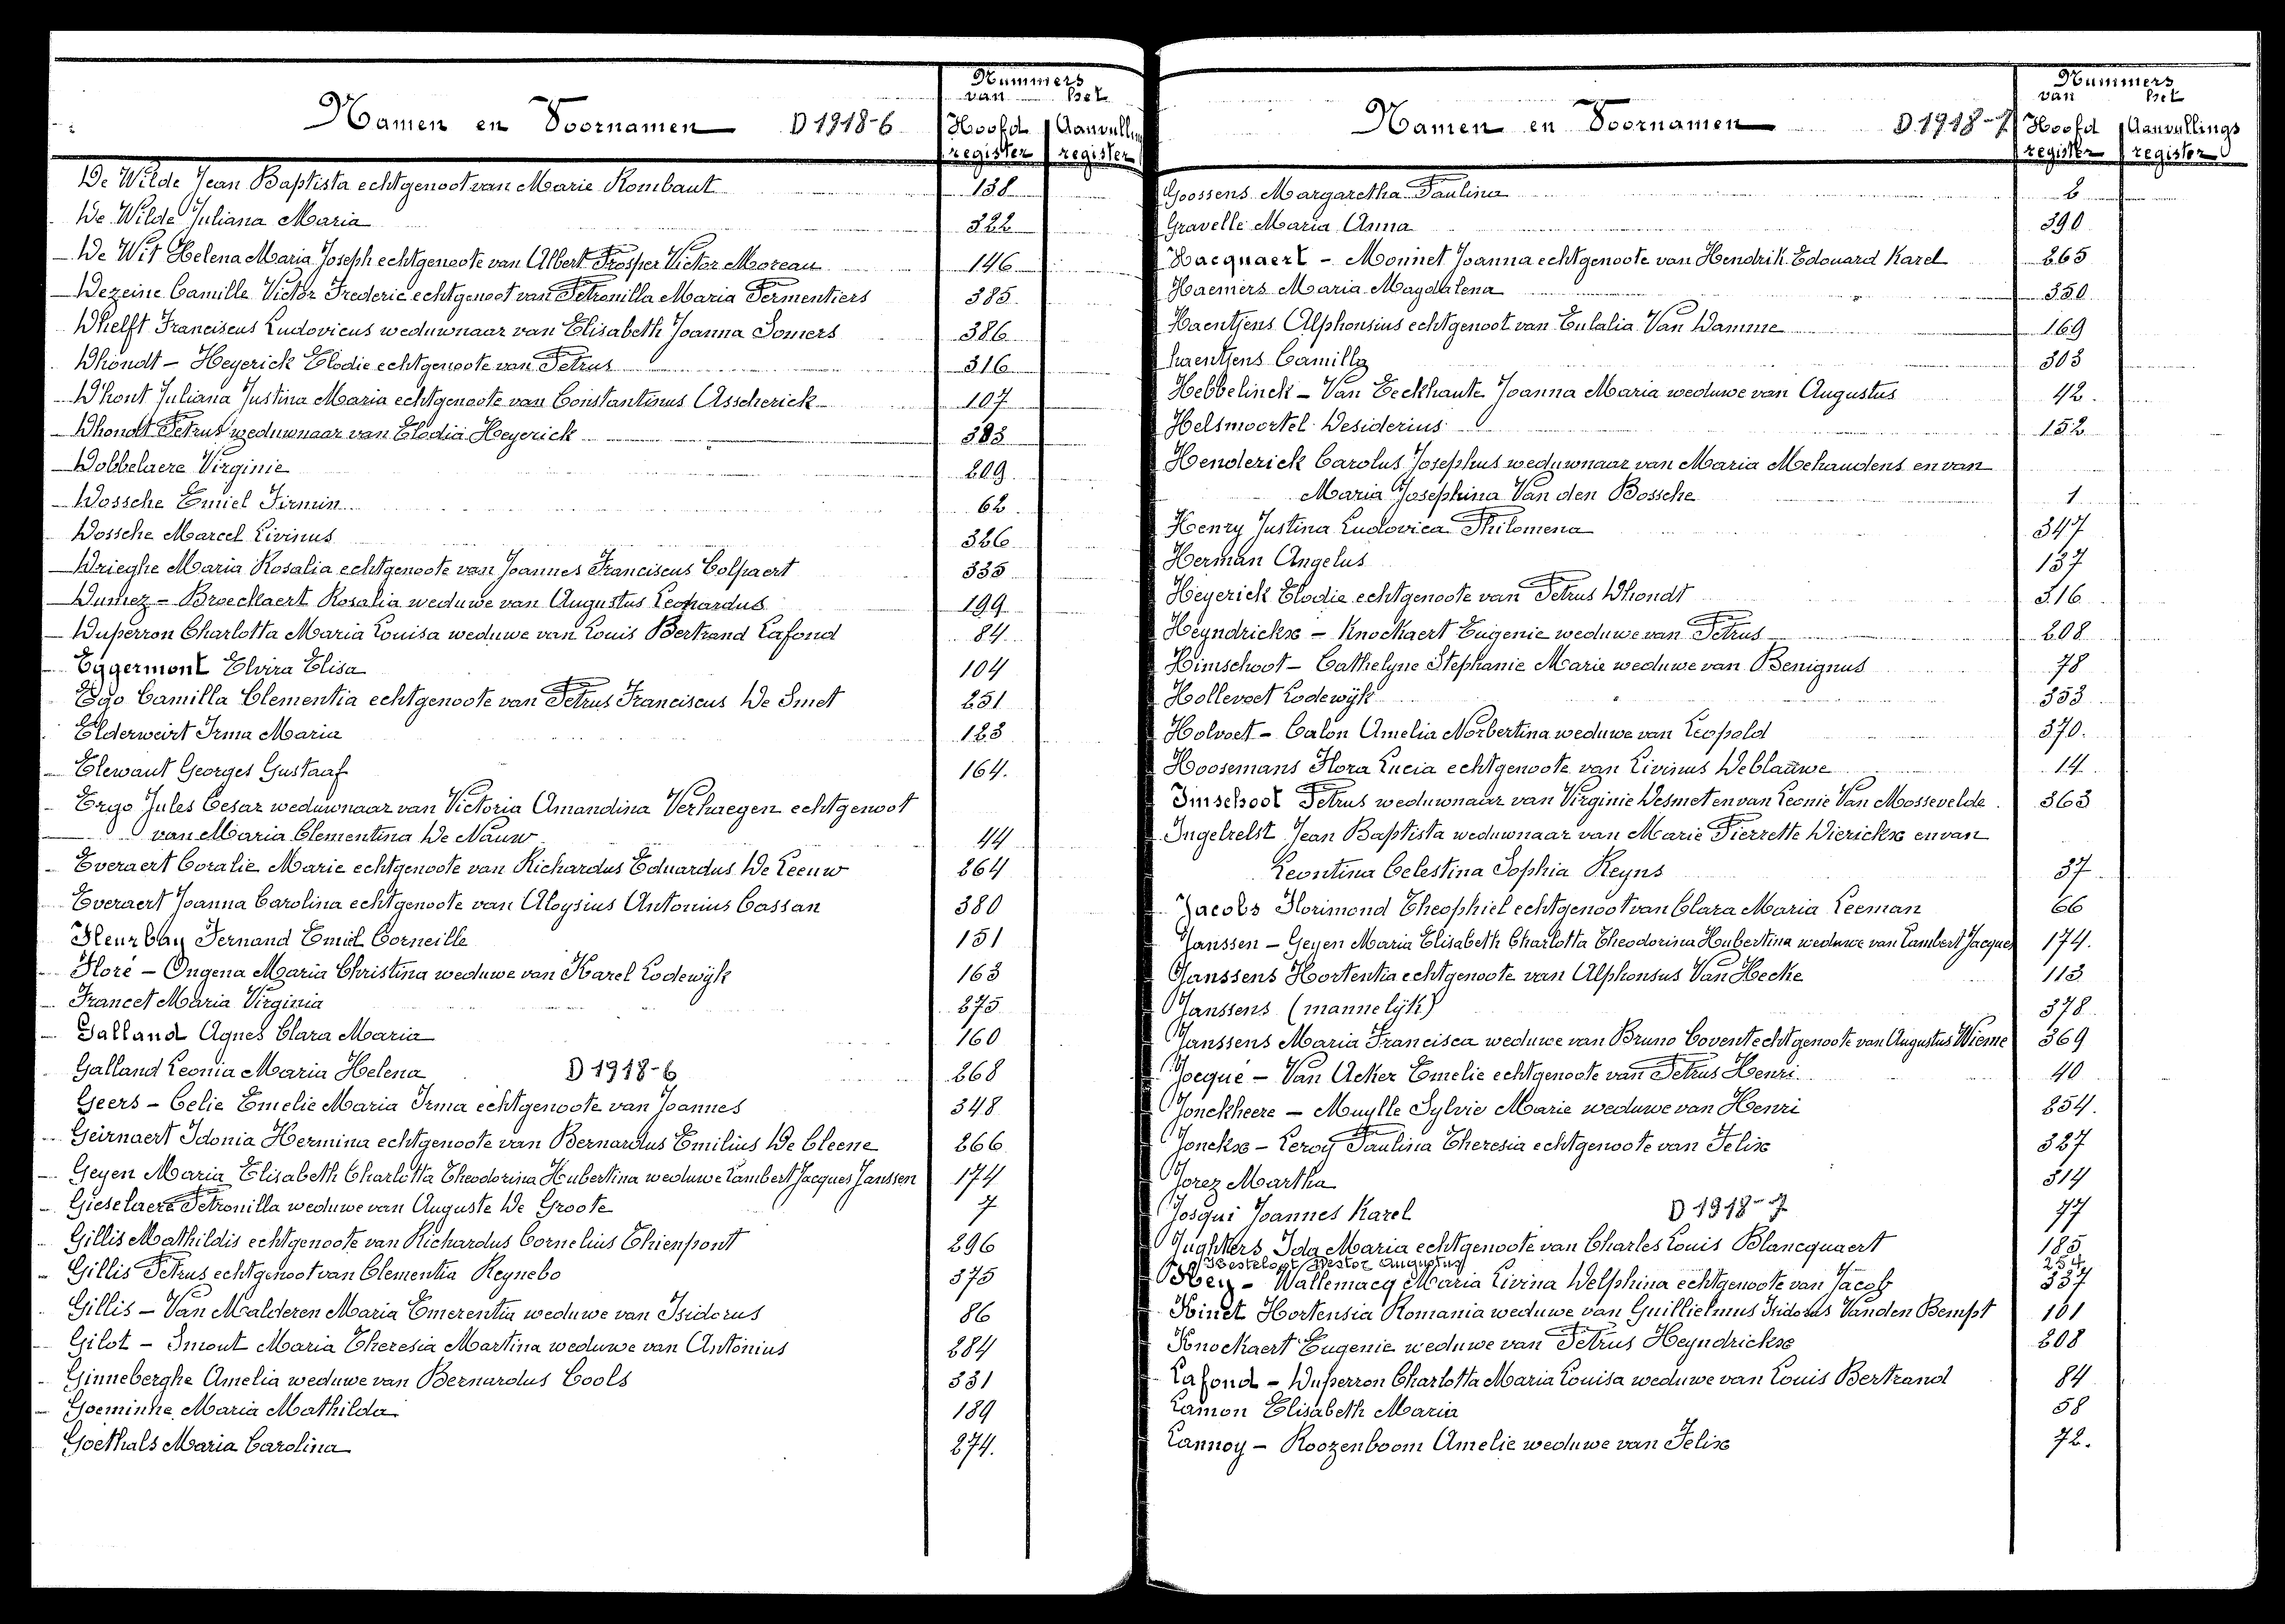 Nummers
van het
Namen en Voornamen D 1918-6 Hoofd Aanvullin
register register
De Wilde Jean Baptista echtgenoot van Marie Rombaut 138
De Wilde Juliana Maria 322
De Wit Helena Maria Joseph echtgenoote van Albert Prosper Victor Moreau 146
Dezeine Camille Victor Frederic echtgenoot van Petronilla Maria Permentiers 385
Dhelft Franciscus Ludovicus weduwnaar van Elisabeth Joanna Somers 386
Dhondt - Heyerick Elodie echtgenoote van Petrus 316
D'hont Juliana Justina Maria echtgenoote van Constantinus Asscherick 107
Dhondt Petrus weduwnaar van Elodia Heyerick 383
Dobbelaere Virginie 209
Dossche Emiel Firmin 62
Dossche Marcel Livinus 326
Drieghe Maria Rosalia echtgenoote van Joannes Franciscus Colpaert 335
Dumez - Broeckaert Rosalia weduwe van Augustus Leonardus 199
Duperron Charlotta Maria Louisa weduwe van Louis Bertrand Lafond 84
Eggermont Elvira Elisa 104
Ego Camilla Clementia echtgenoote van Petrus Franciscus De Smet 251
Elderweirt Irma Maria 123
Elewaut Georges Gustaaf 164.
Ergo Jules Cesar weduwnaar van Victoria Amandina Verhaegen echtgenoot
van Maria Clementina De Nauw 44
Everaert Coralie Marie echtgenoote van Richardus Eduardus De Leeuw 264
Everaert Joanna Carolina echtgenoote van Aloysius Antonius Cassan 380
Fleurbay Fernand Emiel Corneille 151
Floré - Ongena Maria Christina weduwe van Karel Lodewijk 163
Francet Maria Virginia 275
Galland Agnes Clara Maria 160
Galland Leonia Maria Helena D 1918-6 268
Geers - Celie Emelie Maria Irma echtgenoote van Joannes 348
Geirnaert Idonia Hermina echtgenoote van Bernardus Emilius De Cleene 266
Geyen Maria Elisabeth Charlotta Theodorina Hubertina weduwe Lambert Jacques Janssen 174
Gieselaere Petronilla weduwe van Auguste De Groote 7
Gillis Mathildis echtgenoote van Richardus Cornelius Thienpont 296
Gillis Petrus echtgenoot van Clementia Reynebo 375
Gillis - Van Malderen Maria Emerentia weduwe van Isidorus 86
Gilot - Smout Maria Theresia Martina weduwe van Antonius 284
Ginneberghe Amelia weduwe van Bernardus Cools 331
Goeminne Maria Mathilda 189
Goethals Maria Carolina 274.
Nummers
van het
Namen en Voornamen D. 1918-7 Hoofd Aanvullings
register register
Goossens Margaretha Paulina 2
Gravelle Maria Anna 390
Hacquaert - Monnet Joanna echtgenoote van Hendrik Edouard Karel 265
Haemers Maria Magdalena 350
Haentjens Alphonsius echtgenoot van Eulalia Van Damme 169
haentjens Camilla 303
Hebbelinck - Van Eeckhaute Joanna Maria weduwe van Augustus 42.
Helsmoortel Desiderius 152
Henderick Carolus Josephus weduwnaar van Maria Mehaudens en van
Maria Josephina Van den Bossche 1
Henry Justina Ludovica Philomena 347
Herman Angelus 137
Heyerick Elodie echtgenoote van Petrus Dhondt 316
Heyndrickx - Knockaert Eugenie weduwe van Petrus 208
Himschoot - Cathelyne Stephanie Marie weduwe van Benignus 78
Hollevoet Lodewijk 353
Holvoet - Calon Amelia Norbertina weduwe van Leopold 370.
Hoosemans Flora Lucia echtgenoote van Livinus Deblauwe 14
Imschoot Petrus weduwnaar van Virginie Desmet en van Leonie Van Mossevelde. 363
Ingelrelst Jean Baptista weduwnaar van Marie Pierrette Dierickx en van
Leontina Celestina Sophia Reyns 37
Jacobs Florimond Theophiel echtgenoot van Clara Maria Leeman 66
Janssen - Geyen Maria Elisabeth Charlotta Theodorina Hubertina weduwe van Lambert Jacques 174.
Janssens Hortentia echtgenoote van Alphonsus Van Hecke 113
Janssens (mannelijk) 378
Janssens Maria Francisca weduwe van Bruno Covent echtgenoote van Augustus Wieme 369
Jocqué - Van Acker Emelie echtgenoote van Petrus Henri 40
Jonckheere - Muylle Sylvie Marie weduwe van Henri 254.
Jonckx - Leroy Paulina Theresia echtgenoote van Felix 327
Jorez Martha 314
Josqui Joannes Karel D 1918-7 77
Jughters Ida Maria echtgenoote van Charles Louis Blancquaert 185
Kesteloot Nestor Augustus 254
Key - Wallemacq Maria Livina Delphina echtgenoote van Jacob 337
Kinet Hortensia Romania weduwe van Guillielmus Isidorus Vanden Bempt 101
Knockaert Eugenie weduwe van Petrus Heyndrickx 208
Lafond - Duperron Charlotta Maria Louisa weduwe van Louis Bertrand 84
Lamon Elisabeth Maria 58
Lannoy - Roozenboom Amelie weduwe van Felix 72.